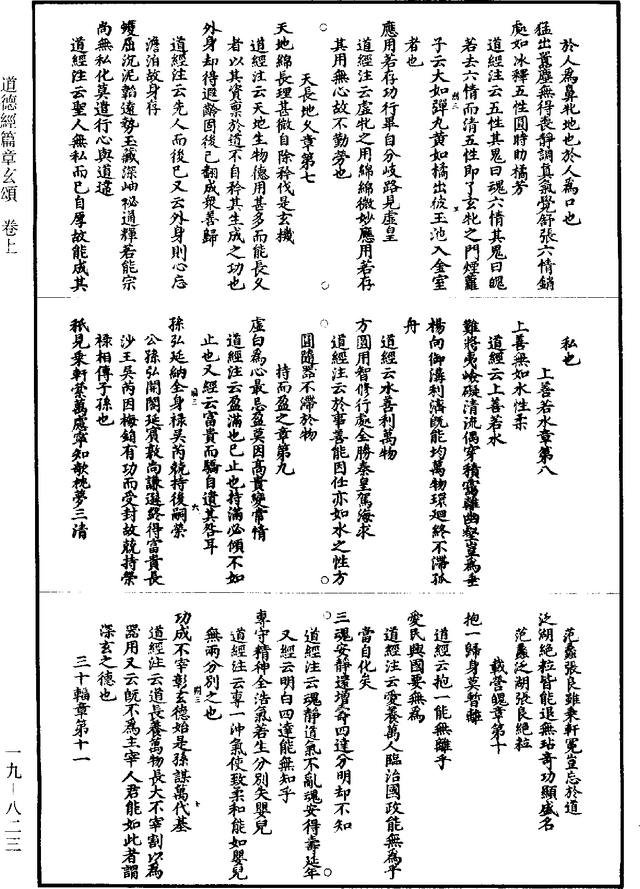 道德經篇章玄頌 卷上
一九－八二三
於人為鼻牝地也於人為口也
猛出囂塵無得喪靜調真氣覺舒張六情銷
處如冰釋五性圓時助橘芳
道經注云五性其鬼曰魂六情其鬼曰魄
若去六情而清五性即了玄牝之門煙蘿
子云大如彈丸黃如橘出彼玉池入金室
者也
應用若存功行畢自分岐路見虛皇
道經注云虛牝之用綿綿微妙應用若存
其用無心故不勤勞也
天長地久章第七
天地綿長理甚微自除矜伐是玄機
道經注云天地生物德用甚多而能長久
者以其資稟於道不自矜其生成之功也
外身却得遐齡固後己翻成衆善歸
道經注云先人而後己又云外身則心忘
澹泊故身存
蠖屈沉泥韜遠勢玉藏深岫祕通輝若能宗
尚無私化莫道行心與道違
道經注云聖人無私而已自厚故能成其
私也
上善若水章第八
上善無如水性柔
道經云上善若水
難將夷嶮礙清流偶穿積靄離幽壑豈為垂
楊向御溝利濟既能均萬物環迴終不滯孤
舟
道經云水善利萬物
方圓用智修行處全勝秦皇駕海求
道經注云於事善能因任亦如水之性方
圓隨器不滯於物
持而盈之章第九
虛白為心最忌盈莫因高貴變常情
道經注云盈滿也已止也持滿必傾不如
止也又經云富貴而驕自遺其咎耳
孫弘延納全身祿吳芮兢持後嗣榮
公孫弘開閤延賓敦尚謙遜終得富貴長
沙王吳芮因梅鋗有功而受封故兢持榮
祿相傳子孫也
秪見乘軒縈萬慮寧知欹枕夢三清
范蠡張良雖乘軒冕豈忘於道
泛湖絕粒皆能退無玷奇功顯盛名
范蠡泛湖張良絕粒
載營魄章第十
抱一歸身莫暫離
道經云抱一能無離乎
愛民興國要無為
道經注云愛養萬人臨治國政能無為乎
當自化矣
三魂安靜遠增奇四達分明却不知
道經注云魂靜道氣不亂魂安得壽延年
又經云明白四達能無知乎
專守精神全浩氣若生分別失嬰兒
道經注云專一沖氣使致柔和能如嬰兒
無兩分別之也
功成不宰彰玄德始是孫謀萬代基
道經注云道長養萬物長大不宰割以為
器用又云既不為主宰人君能如此者謂
深玄之德也
三十輻章第十一